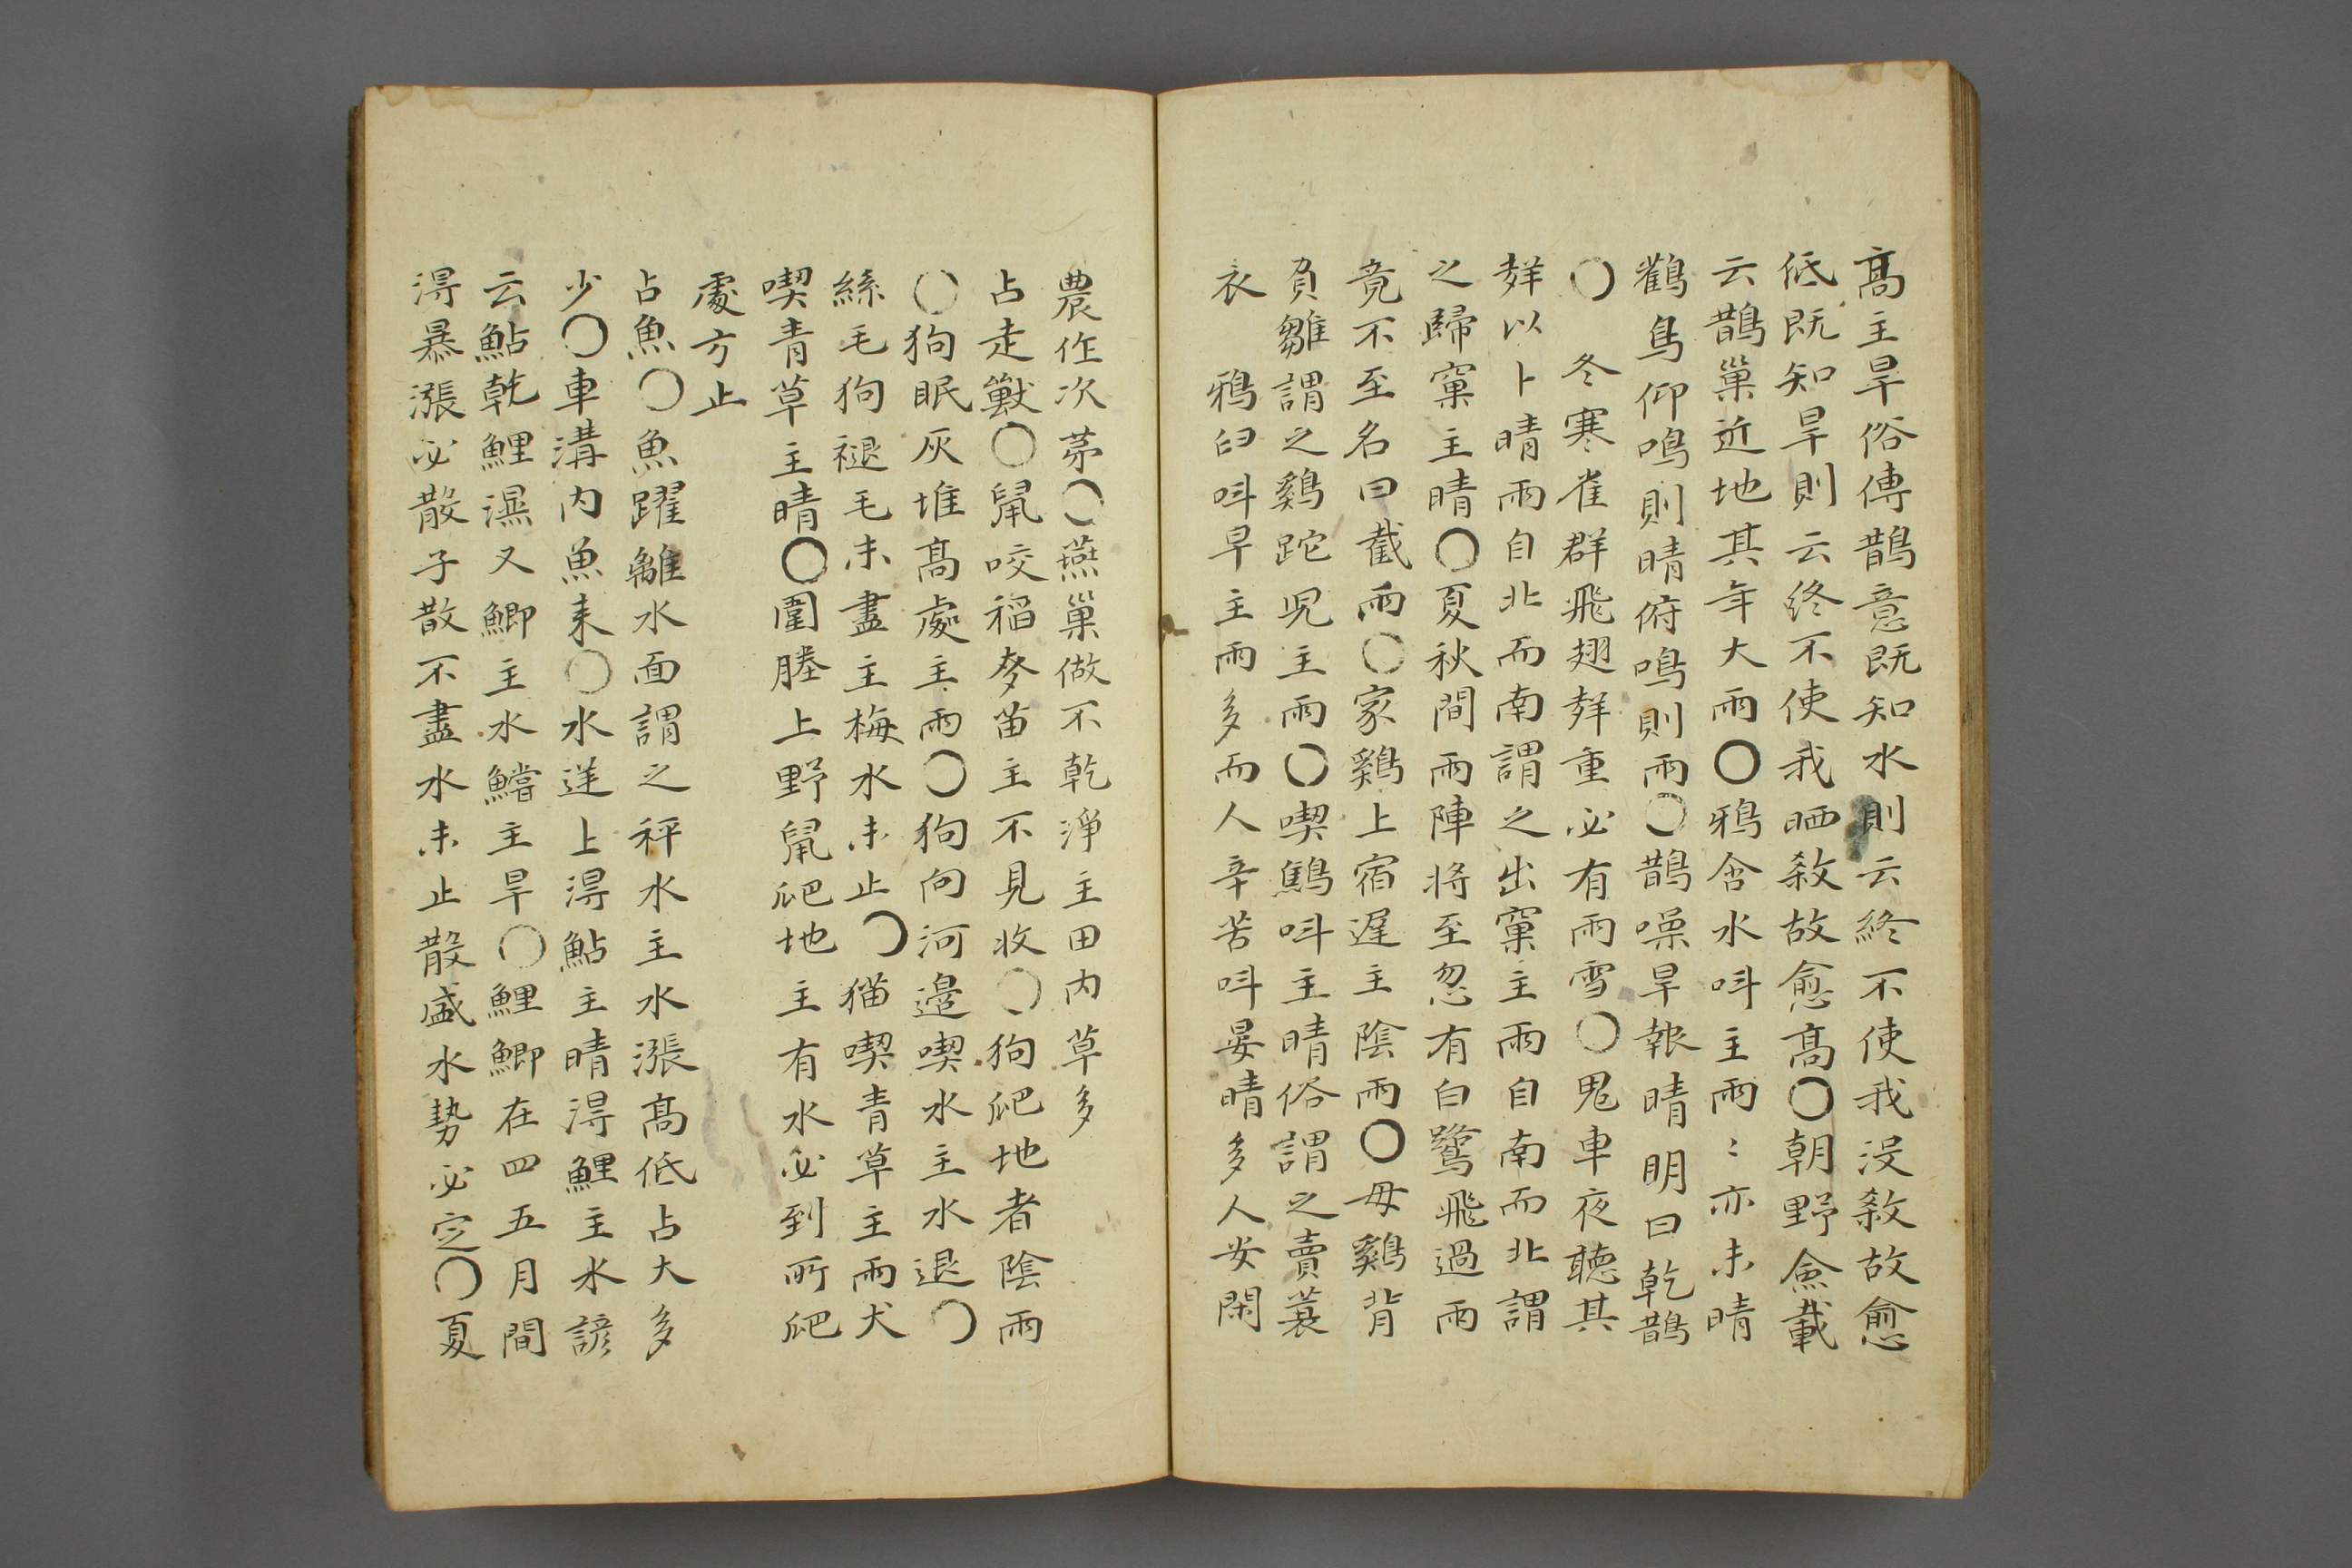 高主旱俗傳鵲意既知水則云終不使我没殺故愈
低既知旱則云終不使我晒殺故愈高〇朝野僉載
云鵲巢近地其年大雨〇鴉含水呌主雨〻亦未晴
鸛鳥仰鳴則晴俯鳴則雨〇鵲噪旱報晴明曰乾鵲
〇冬寒雀群飛翅聲重必有雨雪〇鬼車夜聽其
聲以卜晴雨自北而南謂之出窠主雨自南而北謂
之歸窠主晴〇夏秋間雨陣將至忽有白鷺飛過雨
竟不至名曰截雨〇家鷄上宿遲主陰雨〇母鷄背
負雛謂之鷄跎児主雨〇喫鷦呌主晴俗謂之賣蓑
衣　鴉臼呌早主雨多而人辛苦呌晏晴多人安閑
農作次苐〇燕巢做不乾淨主田内草多
占走獸〇鼠咬稻麥苗主不見收〇狗爬地者陰雨
〇狗眠灰堆高處主雨〇狗向河邉喫水主水退〇
絲毛狗褪毛未盡主梅水未止〇猫喫青草主雨犬
喫青草主晴〇圍塍上野鼠爬地主有水必到所爬
處方止
占魚〇魚躍離水面謂之秤水主水漲高低占大多
少〇車溝内魚来〇水逆上得鮎主晴得鯉主水諺
云鮎乾鯉濕又鯽主水鱨主旱〇鯉鯽在四五月間
得暴漲必散子散不盡水未止散盛水势必定〇夏